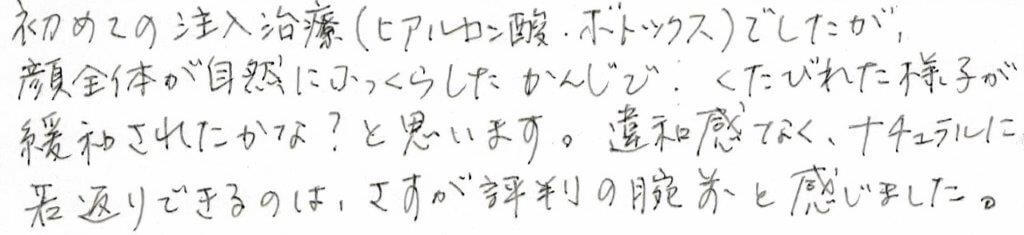 初めての注入治療(ヒアルロン酸・ボトックス)でしたが,
顔全体が自然にふっくらしたかんじで. くたびれた様子が
緩和されたかな?と思います。違和感なく、ナチュラルに
若返りできるのは, さすが評判の腕前と感じました。